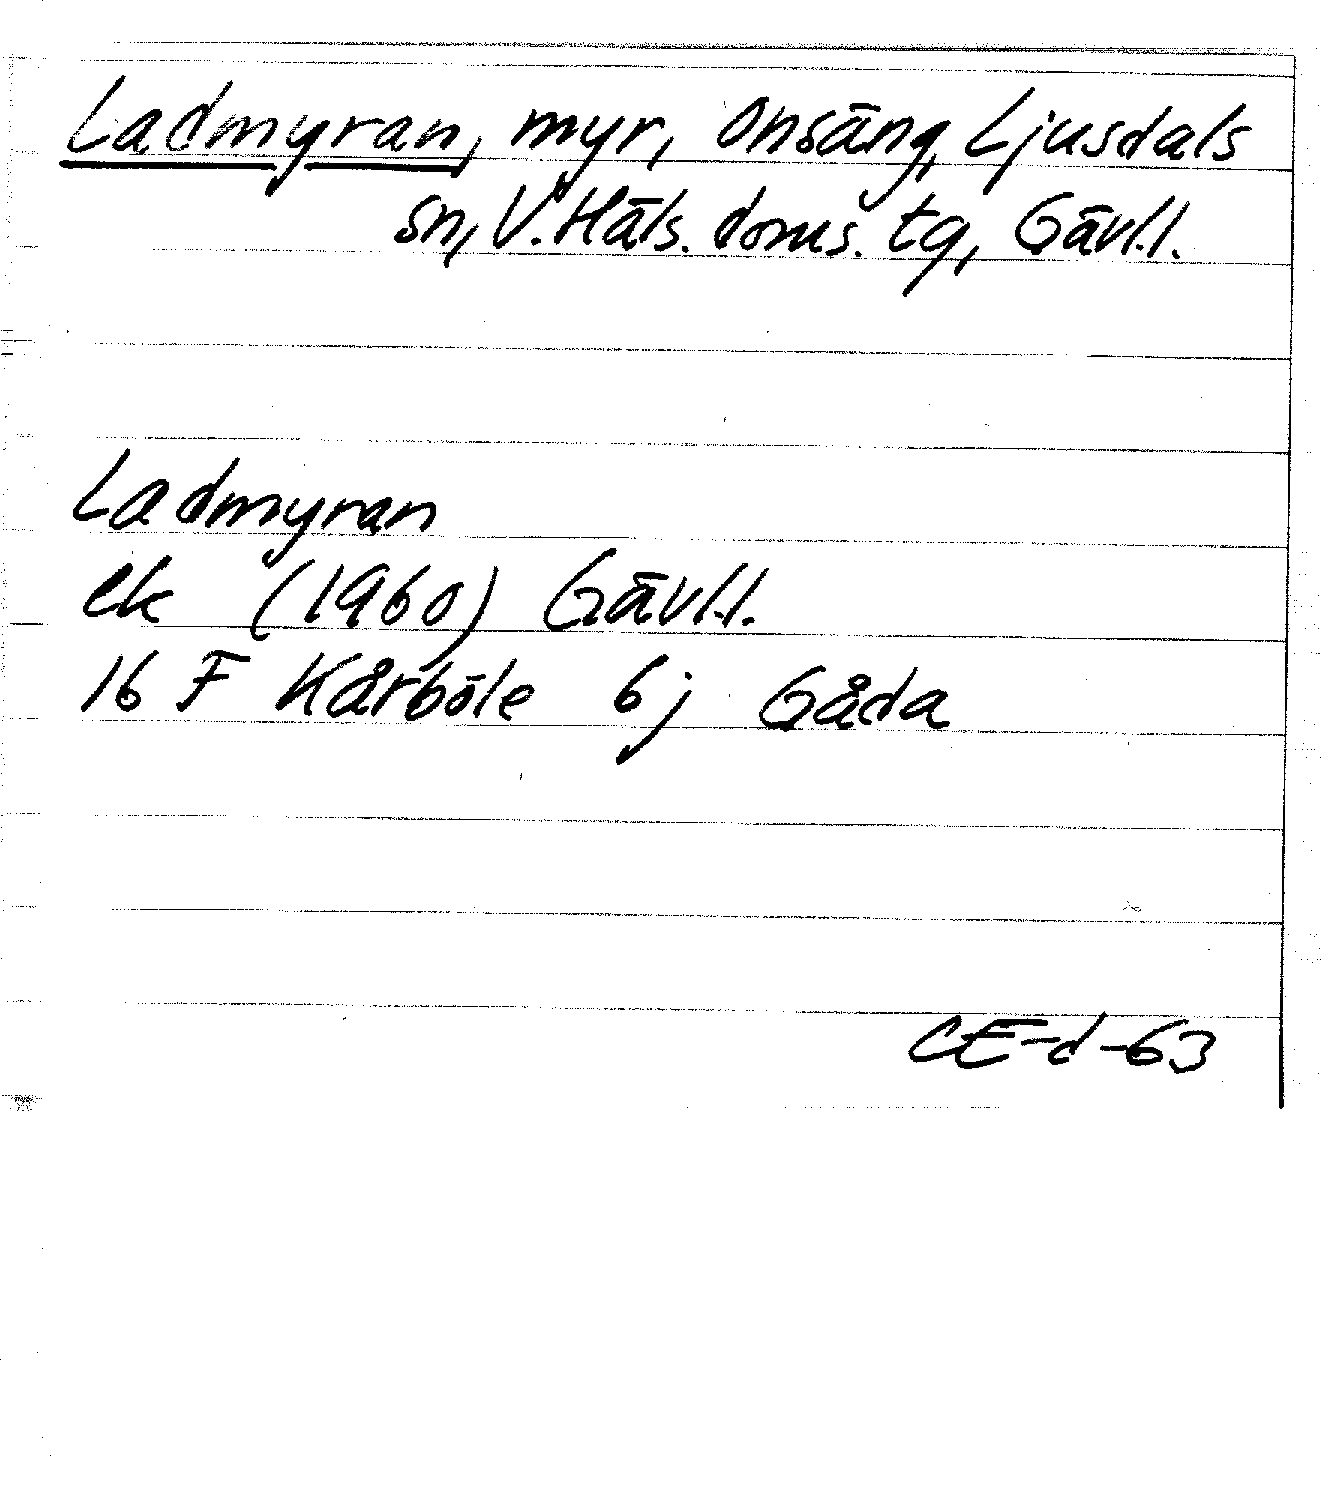 Ladmyran, myr, Onsäng, Ljusdals
sn, V. Häls. doms. tg, Gävl.l.
Ladmyran
ek (1960) Gävl.l.
16 F Kårböle 6j Gåda
CE-d-63